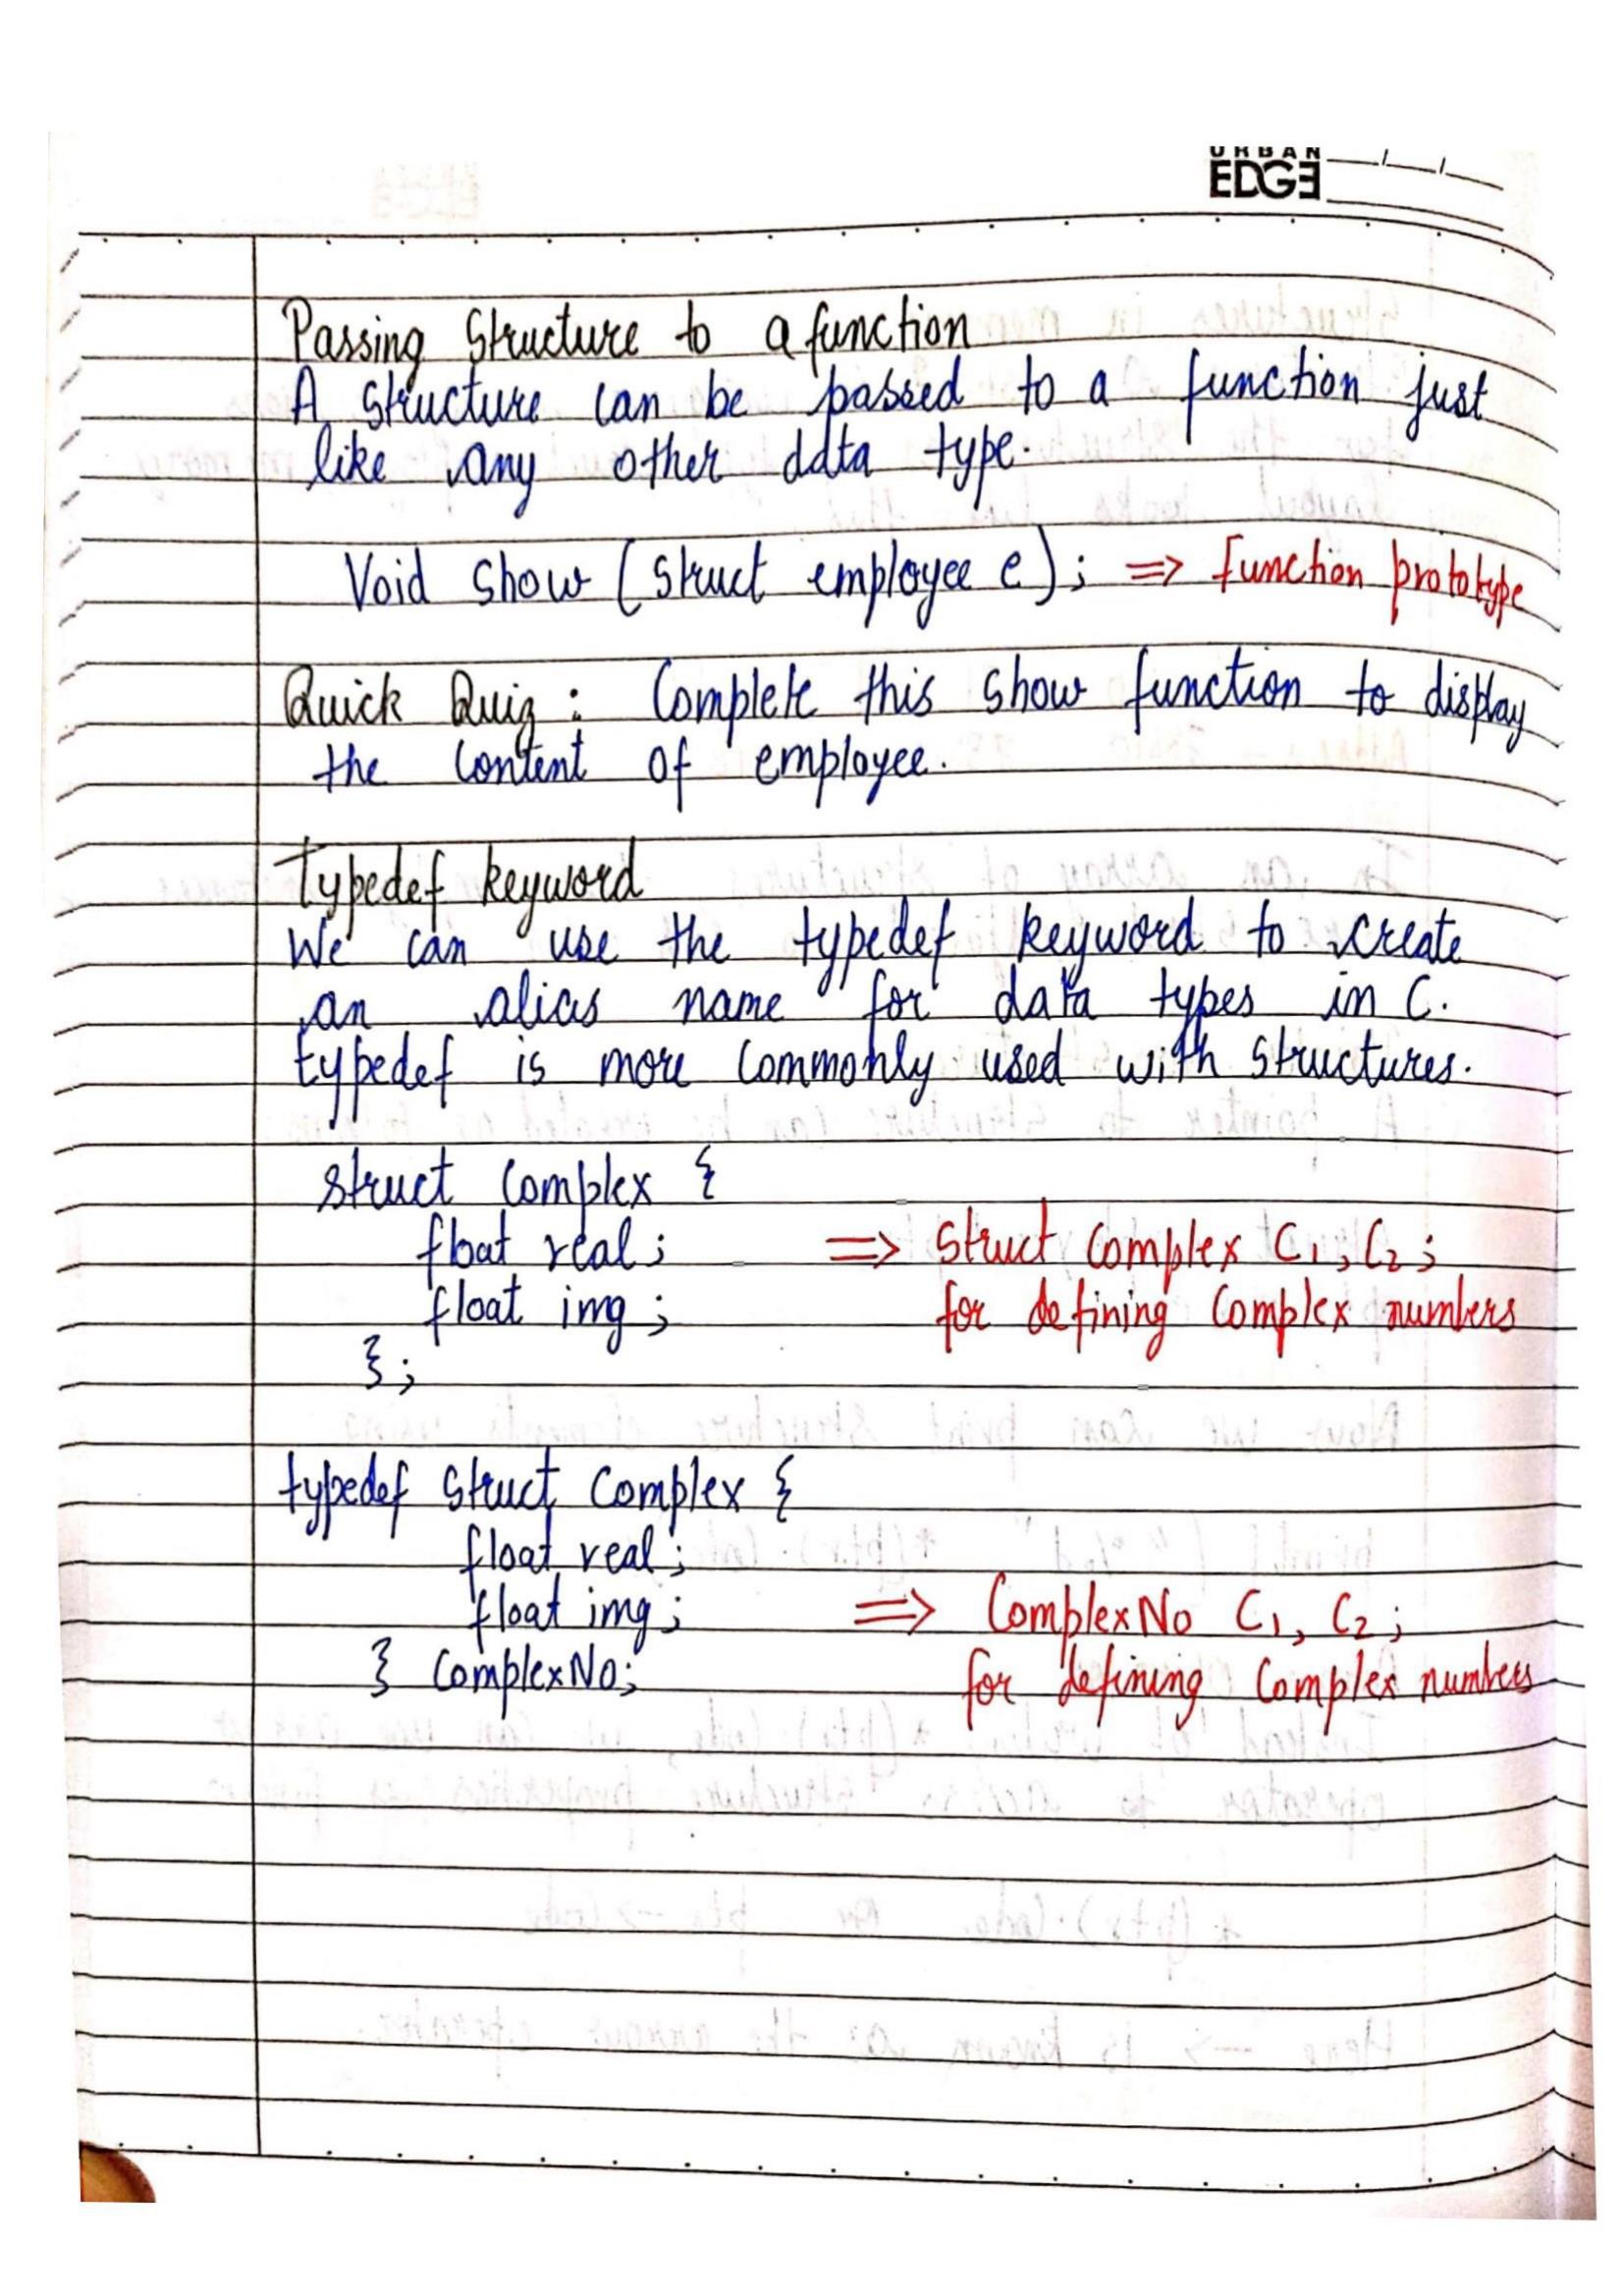 URBAN
EDGE
Passing Structure to a function
A structure can be passed to a function just
like any other data type.
Void show (struct employee e); => function prototype
Quick Quiz : Complete this show function to display
the content of employee.
Typedef keyword
We can use the typedef keyword to create
an alias name for data types in C.
typedef is more commonly used with structures.
struct complex {
float real; => struct complex C1, C2;
float img; for defining complex numbers
};
typedef struct complex {
float real;
float img; => ComplexNo C1, C2;
} ComplexNo; for defining complex numbers